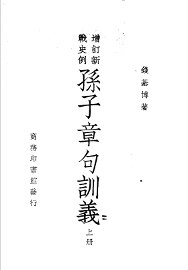 錢基博著
增訂新
戰史例
孫子章句訓義
上册
商務印書館發行